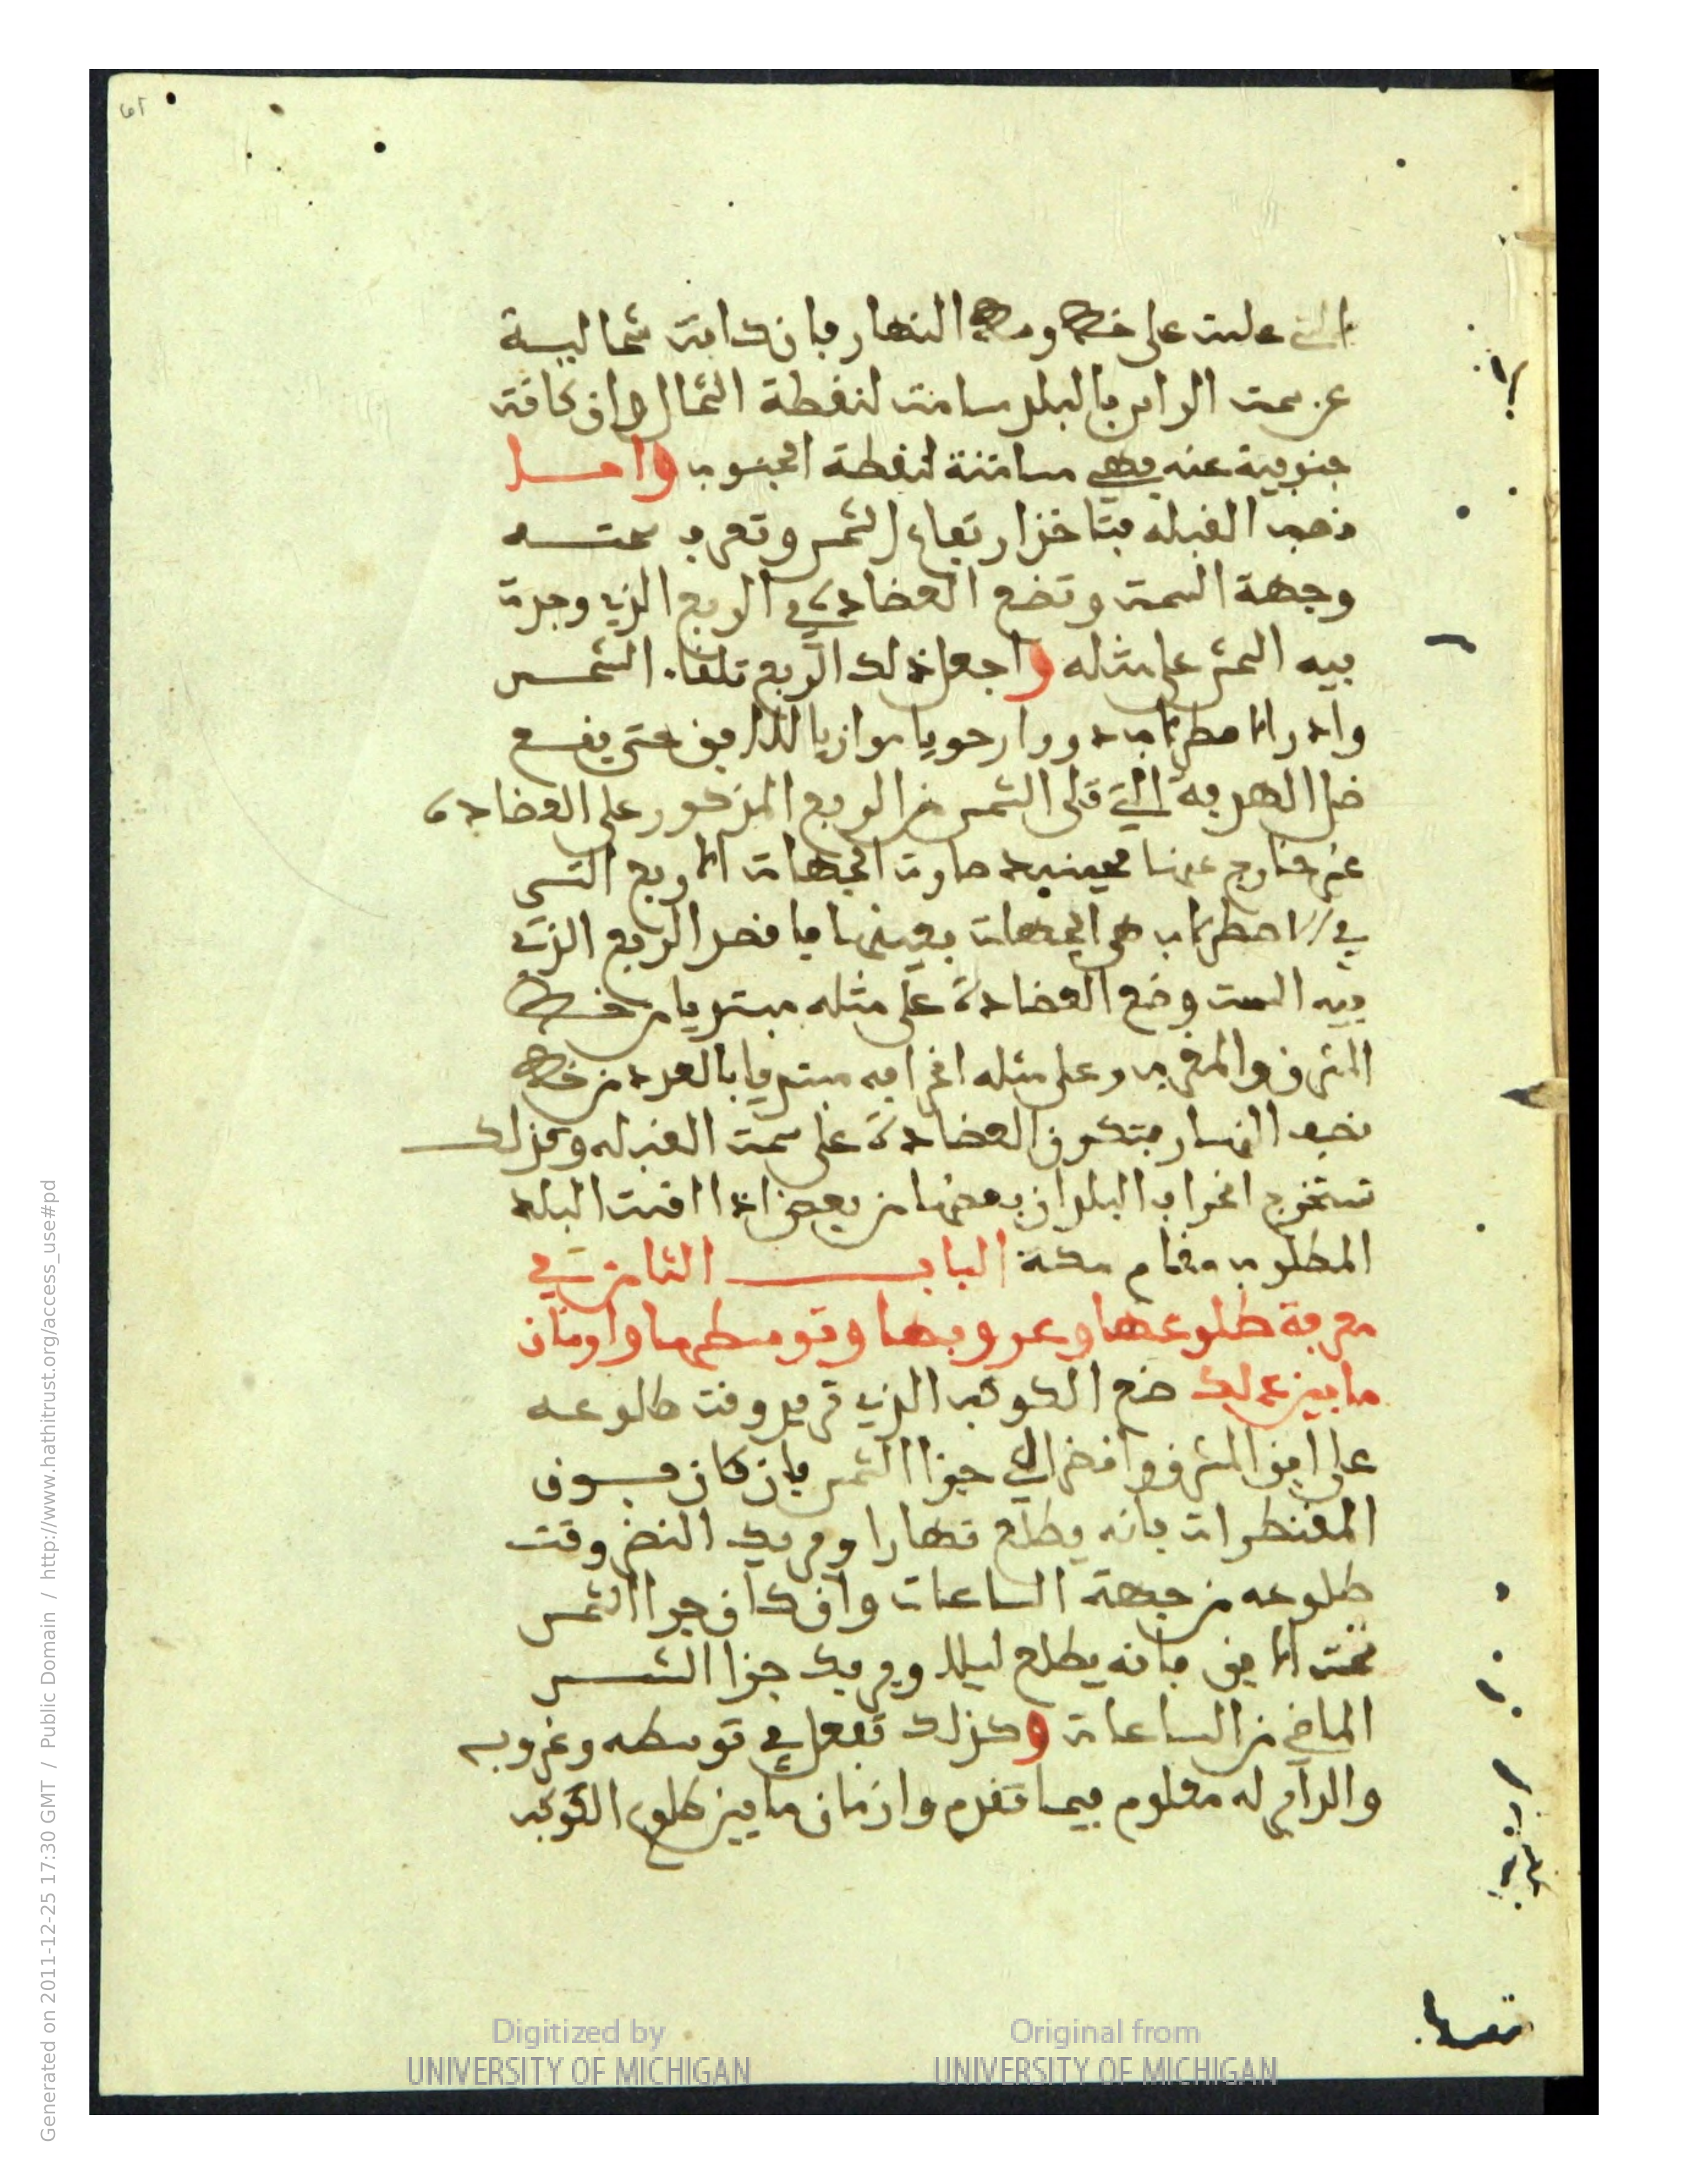 التي علت على خط وسط النهار فإن كانت شمالية
عن سمت الراس بالبلد سامت لنقطة الشمال وإن كانت
جنوبية عنه فهي مسامتة لنقطة الجنوب وامــا
نصب القبلة فتاخذ ارتفاع الشمس وتعرف سمتــه
وجهة السمت وتضع العضادة في الربع الذي وجدت
فيه السمت على مثله واجعل ذلك الربع تلقاء الشمس
وادر الاصطرلاب دورا رحويا موازيا للافق حتى يقع
ظل الهدفة التي تلى الشمس من الربع المذكور على العضادة
غير خارج عنها فحينيذ صارت الجهات الاربع التي
في الاصطرلاب هي الجهات بعينها فاقصد الربع الذي
فيه السمت وضع العضادة على مثله مبتديا من خط
المشرق والمغرب وعلى مثله انحرافه مبتديا بالعدد من خط
نصف النهار فتكون العضادة على سمت القبلة وكذلك
تستخرج انحراف البلدان بعضها من بعض اذا اقمت البلد
المطلوب مقام مكة البــاب الثامن في
معرفة طلوعها وغروبها وتوسطها وازمان
ما بين ذلك ضع الكوكب الذي تريد وقت طلوعه
على افق المشرق وانظر الى جزء الشمس فإن كان فــوق
المقنطرات فانه يطلع نهارا ويريك النظير وقت
طلوعه من جهة الساعات وان كان جزا الشمس
تحت الافق فانه يطلع ليلا ويريك جزا الشمس
الماضي من الساعات وكذلك تفعل في توسطه وغروبه
والدايم له معلوم فيما تقدم وازمان ما بين طلوع الكوكب
Digitized by
UNIVERSITY OF MICHIGAN
Original from
UNIVERSITY OF MICHIGAN
Generated on 2011-12-25 17:30 GMT / Public Domain / http://www.hathitrust.org/access_use#pd